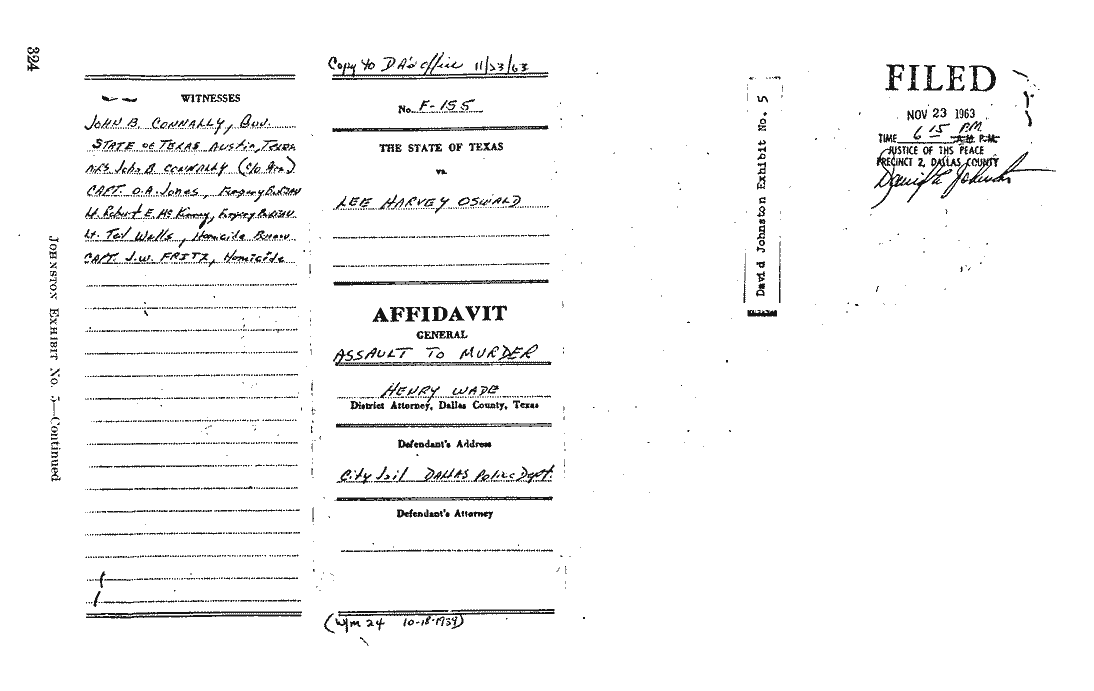 324
JOHNSTON EXHIBIT No. 5—Continued
WITNESSES
JOHN B. CONNALLY, Gov.
STATE OF TEXAS AUSTIN, TEXAS
MRS John B CONNALLY (C/O Gov)
CAPT. O.A. Jones, Forgery BUREAU
Lt. Robert E. McKinney, Forgery BUREAU
Lt. Ted Wells, Homicide Bureau
CAPT. J.W. FRITZ, Homicide
Copy to DA's office 11/23/63
No. F-155
THE STATE OF TEXAS
vs.
LEE HARVEY OSWALD
AFFIDAVIT
GENERAL
ASSAULT TO MURDER
HENRY WADE
District Attorney, Dallas County, Texas
Defendant's Address
City Jail DALLAS Police Dept.
Defendant's Attorney
(W/M 24 10-18-1939)
David Johnston Exhibit No. 5
FILED
NOV 23 1963
TIME 6 15 PM A.M. P.M.
JUSTICE OF THS PEACE
PRECINCT 2, DALLAS COUNTY
David L Johnston